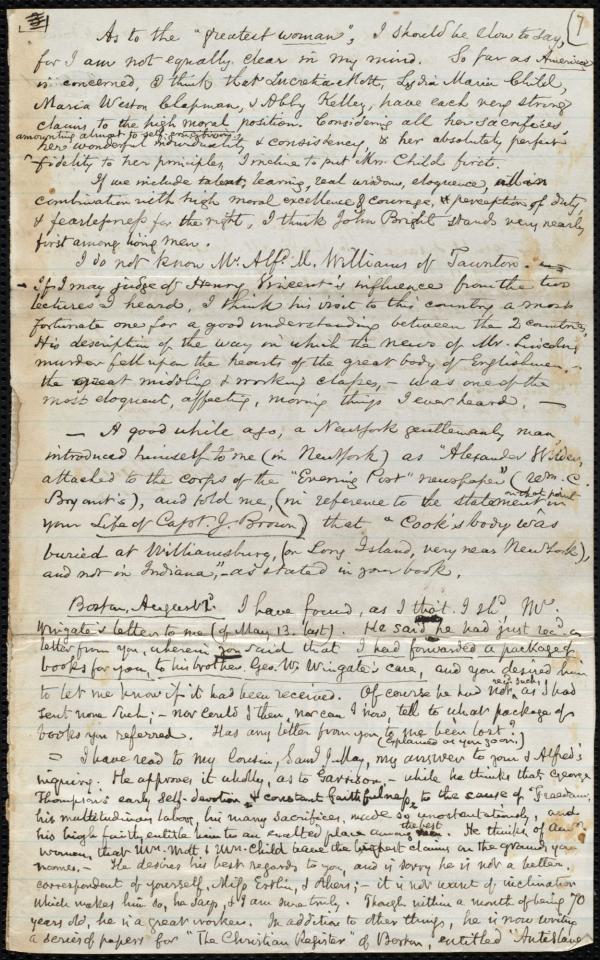 7
As to the "greatest woman", I should be slow to say,
for I am not equally clear in my mind. So far as America
is concerned, I think that Lucretia Mott, Lydia Maria Child,
Maria Weston Chapman, & Abby Kelley, have each very strong
claims to the high moral position. Considering all her sacrifices,
amounting almost to self-
her wonderful individuality, & consistency, & her absolutely perfect
fidelity to her principles, I incline to put Mrs. Child first.
If we include talent, learning, real wisdom, eloquence, all in
combination with high moral excellence & courage, & perception of duty,
& fearlessness for the right, I think John Bright stands very nearly
first among living men.
I do not know Mr. Alfd. M. Williams of Taunton. —
– If I may judge of Henry Vincent's influence from the two
lectures I heard, I think his visit to this country a most
fortunate one for a good understanding between the 2 countries.
His description of the way in which the news of Mr. Lincoln's
murder fell upon the hearts of the great body of Englishmen, –
the great middling & working classes, – was one of the
most eloquent, affecting, moving things I ever heard. —
— A good while ago, a New York gentlemanly man,
introduced himself to me (in New York) as "Alexander Wilder,
attached to the corps of the "Evening Post" newspaper" (Wm. C.
Bryant's), and told me, (in reference to the statement on that point in
your Life of Capt. J. Brown) that "Cook's body was
buried at Williamsburg, (on Long Island, very near New York),
and not in Indiana," – as stated in your book.
Boston, August 1. I have found, as I thot. I shd., Mr.
Wingate's letter to me (of May 13. last). He said he had just recd. a
letter from you, wherein you said that I had forwarded a package of
books for you, to his brother Geo. W. Wingate's care, and you desired him
to let me know if it had been received. Of course he had not recd. such, as I had
sent none such; – nor could I then, nor can I now, tell to what package of
books you referred. Has any letter from you to me been lost?
(Explained as you go on.)
= I have read to my Cousin, Saml J. May, my answer to your & Alfred's
inquiry. He approves it wholly, as to Garrison, – while he thinks that George
Thompson's early self-devotion & constant faithfulness to the cause of Freedom,
his multitudinous labors, his many sacrifices, made so unostentatiously, and
his high fairly entitle him to an exalted place among the best men. He thinks of Amn.
women, that Mrs. Mott & Mrs. Child have the highest claims on the grounds you
name. – He desires his best regards to you, and is sorry he is not a better
correspondent of yourself, Miss Estlin, & others; – it is not want of inclination
which makes him so, he says, & I am sure truly. Though within a month of being 70
years old, he is a great worker. In addition to other things, he is now writing
a series of papers for "The Christian Register" of Boston, entitled "Antislavery